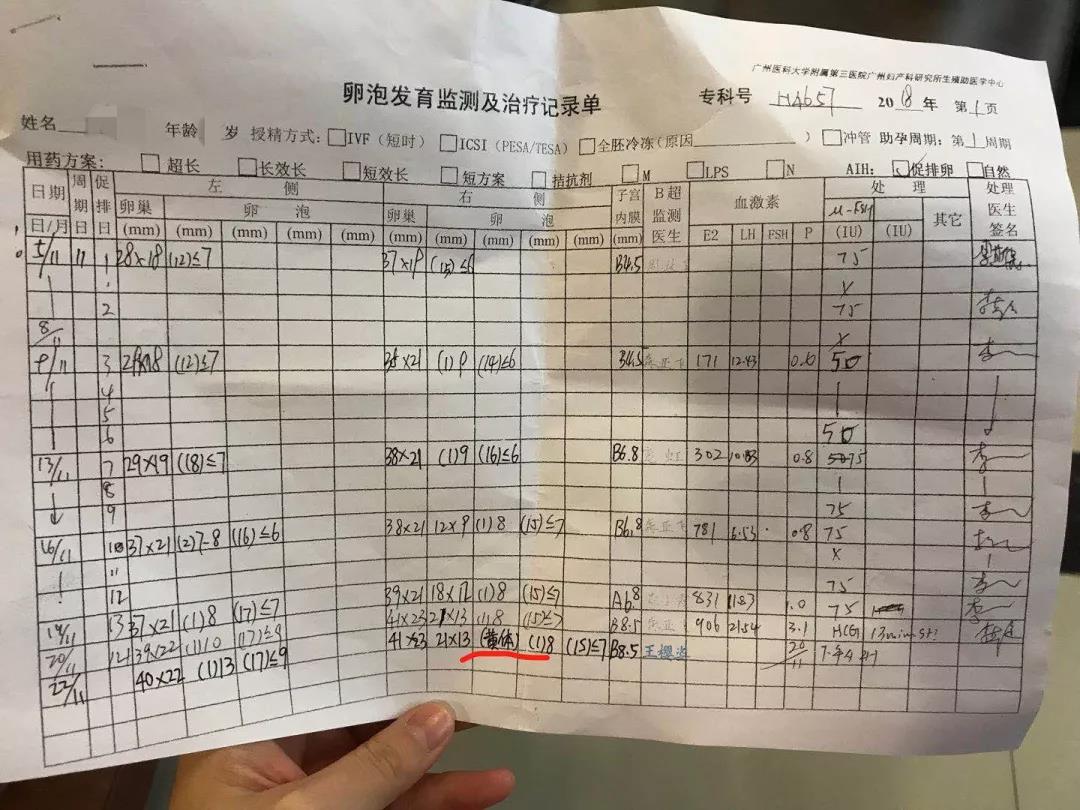 广州医科大学附属第三医院广州妇产科研究所生殖助医学中心
卵泡发育监测及治疗记录单 专科号 HA657 2018年 第1页
姓名 年龄 岁 授精方式:□IVF(短时) □ICSI(PESA/TESA) □全胚冷冻(原因 ) □冲管 助孕周期:第1周期
用药方案: □超长 □长效长 □短效长 □短方案 □拮抗剂 □M □LPS □N AIH: 促排卵 □自然
日期 周期日 促排日 左侧 右侧 子宫内膜 B超监测医生 血激素 处理 处理医生签名
日/月 卵巢 卵泡 卵巢 卵泡 (mm) E2 LH FSH P u-FSH (IU) (IU) 其它
(mm) (mm) (mm) (mm) (mm) (mm) (mm) (mm) (mm) (mm)
5/11 11 1 28×18 (12)≤7 37×19 (15)≤6 B4.5 75
2 75
8/11
9/11 3 (12)≤7 38×21 (1)9 (14)≤6 B4.5 171 12.43 0.6 50
4
5
6 50
13/11 7 29×19 (18)≤7 38×21 (1)9 (16)≤6 B6.8 302 0.8 75
8
9 75
16/11 10 37×21 (2)7-8 (16)≤6 38×21 12×9 (1)8 (15)≤7 B6.8 781 6.53 0.8 75
11
12 75
19/11 13 37×21 (1)8 (17)≤7 39×21 18×12 (1)8 (15)≤7 A6.8 831 1.0 75
20/11 39×22 (1)10 (17)≤9 41×23 21×13 (1)8 (15)≤7 B8.5 906 21.54 3.1 HCG
22/11 40×22 (1)13 (17)≤9 41×23 21×13 (黄体) (1)8 (15)≤7 B8.5 20/11